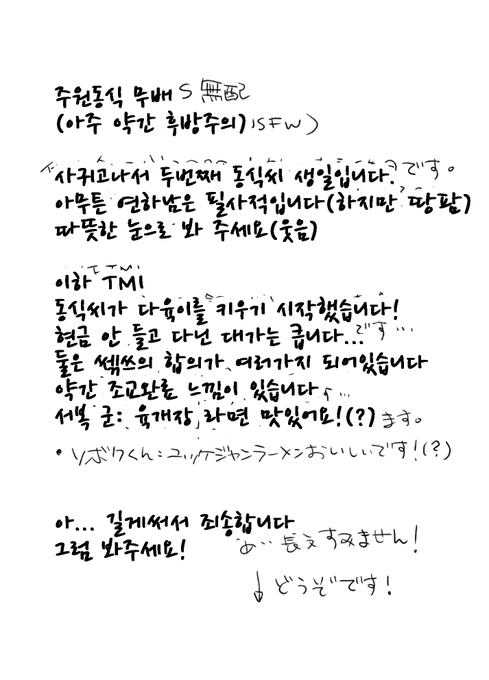 주원동식 무배 S 無配
(아주 약간 후방주의) SFW)
사귀고나서 두번째 동식씨 생일입니다. です。
아무튼 연하남은 필사적입니다(하지만 땅팔)
따뜻한 눈으로 봐 주세요(웃음)
이하 TMI
동식씨가 다육이를 키우기 시작했습니다!
현금 안 들고 다닌 대가는 큽니다... です…
둘은 쎆쓰의 합의가 여러가지 되어있습니다
약간 조교완료 느낌이 있습니다
서복 군: 육개장 라면 맛있어요!(?) ます。
・ソボクくん:ユッケジャンラーメンおいしいです!(?)
아... 길게써서 죄송합니다
그럼 봐주세요! あ… 長文すみません!
↓ どうぞです!